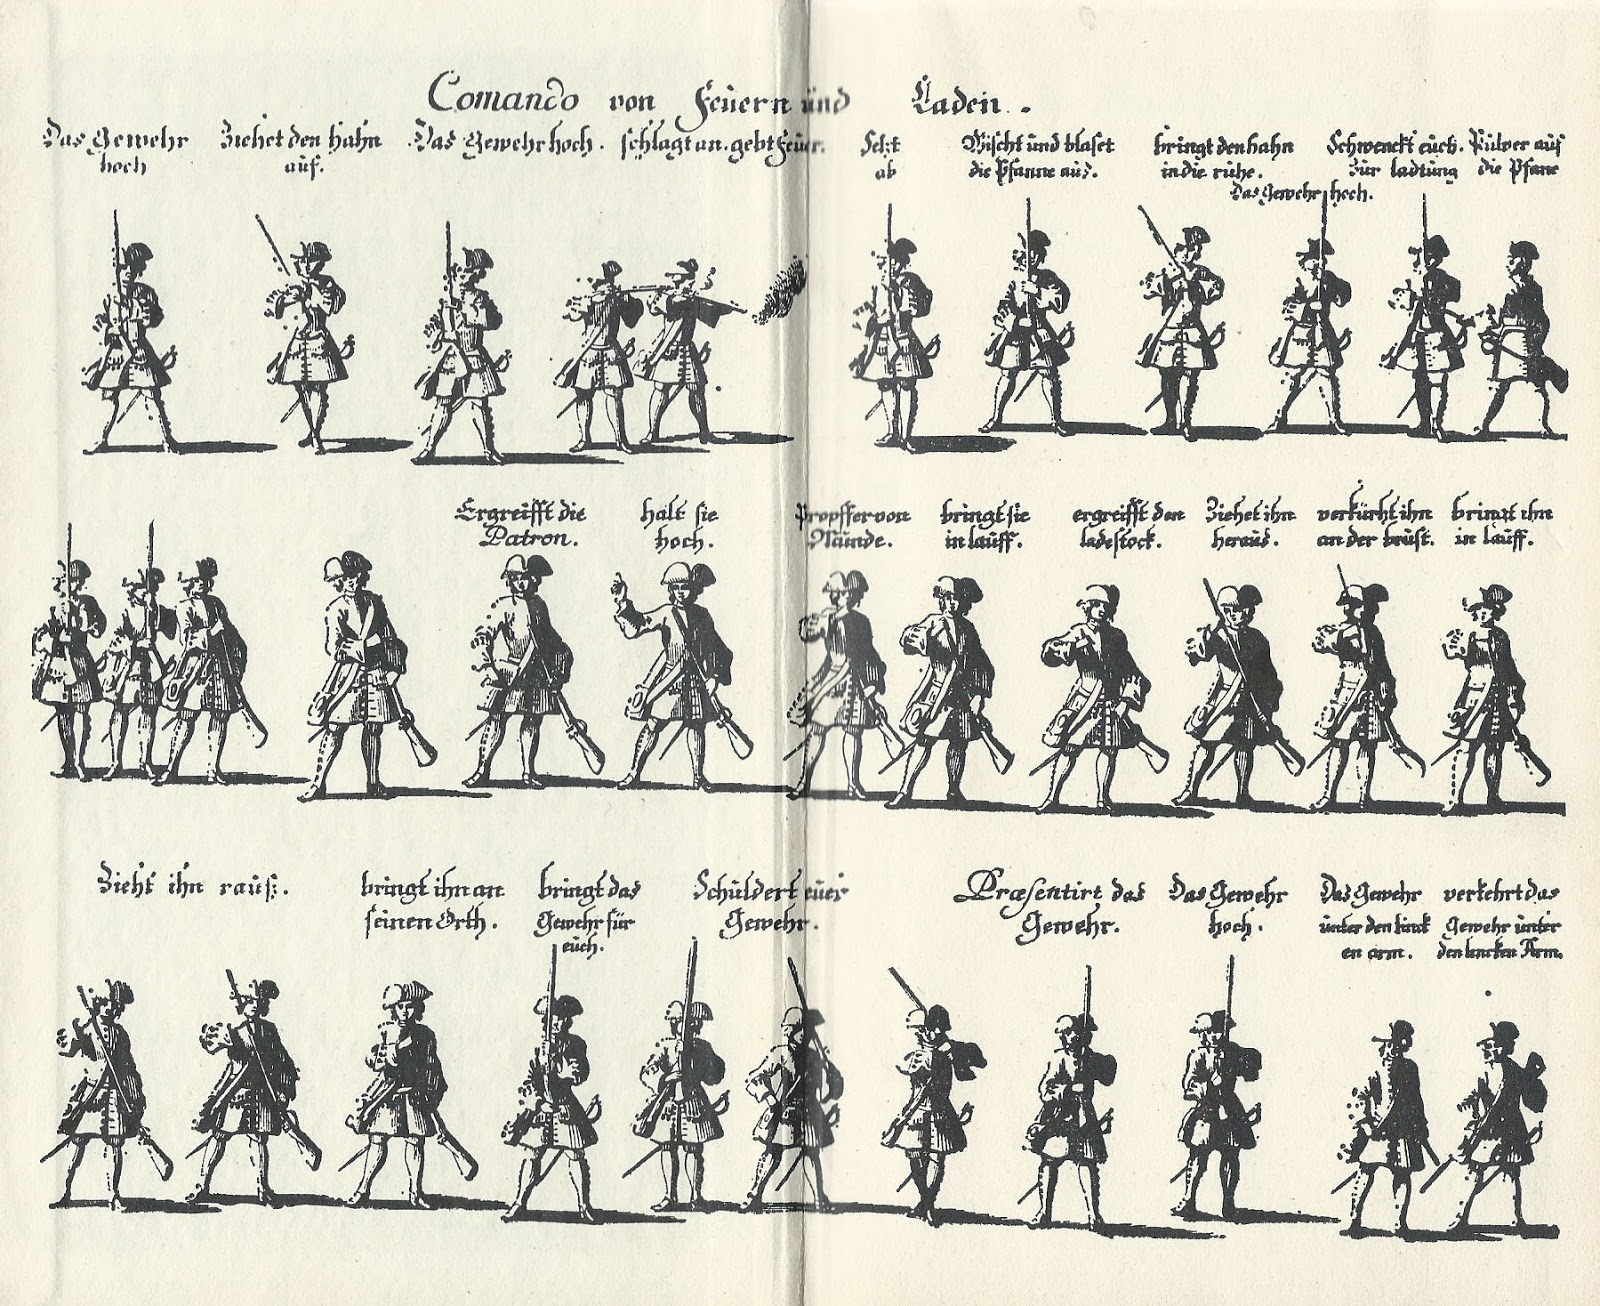 Comando von Feuern und Laden.
Das Gewehr hoch
Ziehet den hahn auf.
Das Gewehr hoch.
schlagt an. gebt Feuer.
Setzt ab
Wischt und blaset die Pfanne aus.
bringt den hahn in die ruhe.
Das Gewehr hoch.
Schwenckt euch. Zur ladtung
Pulver auf die Pfane
Ergreifft die Patron.
halt sie hoch.
Propffer von Munde.
bringt sie in lauff.
ergreifft den ladestock.
Ziehet ihn heraus.
verkürtzt ihn an der brust.
bringt ihn in lauff.
Zieht ihn rauß.
bringt ihn an seinen Orth.
bringt das Gewehr für euch.
Schuldert euer Gewehr.
Præsentirt das Gewehr.
Das Gewehr hoch.
Das Gewehr unter den linck en arm.
verkehrt das Gewehr unter den lincken Arm.